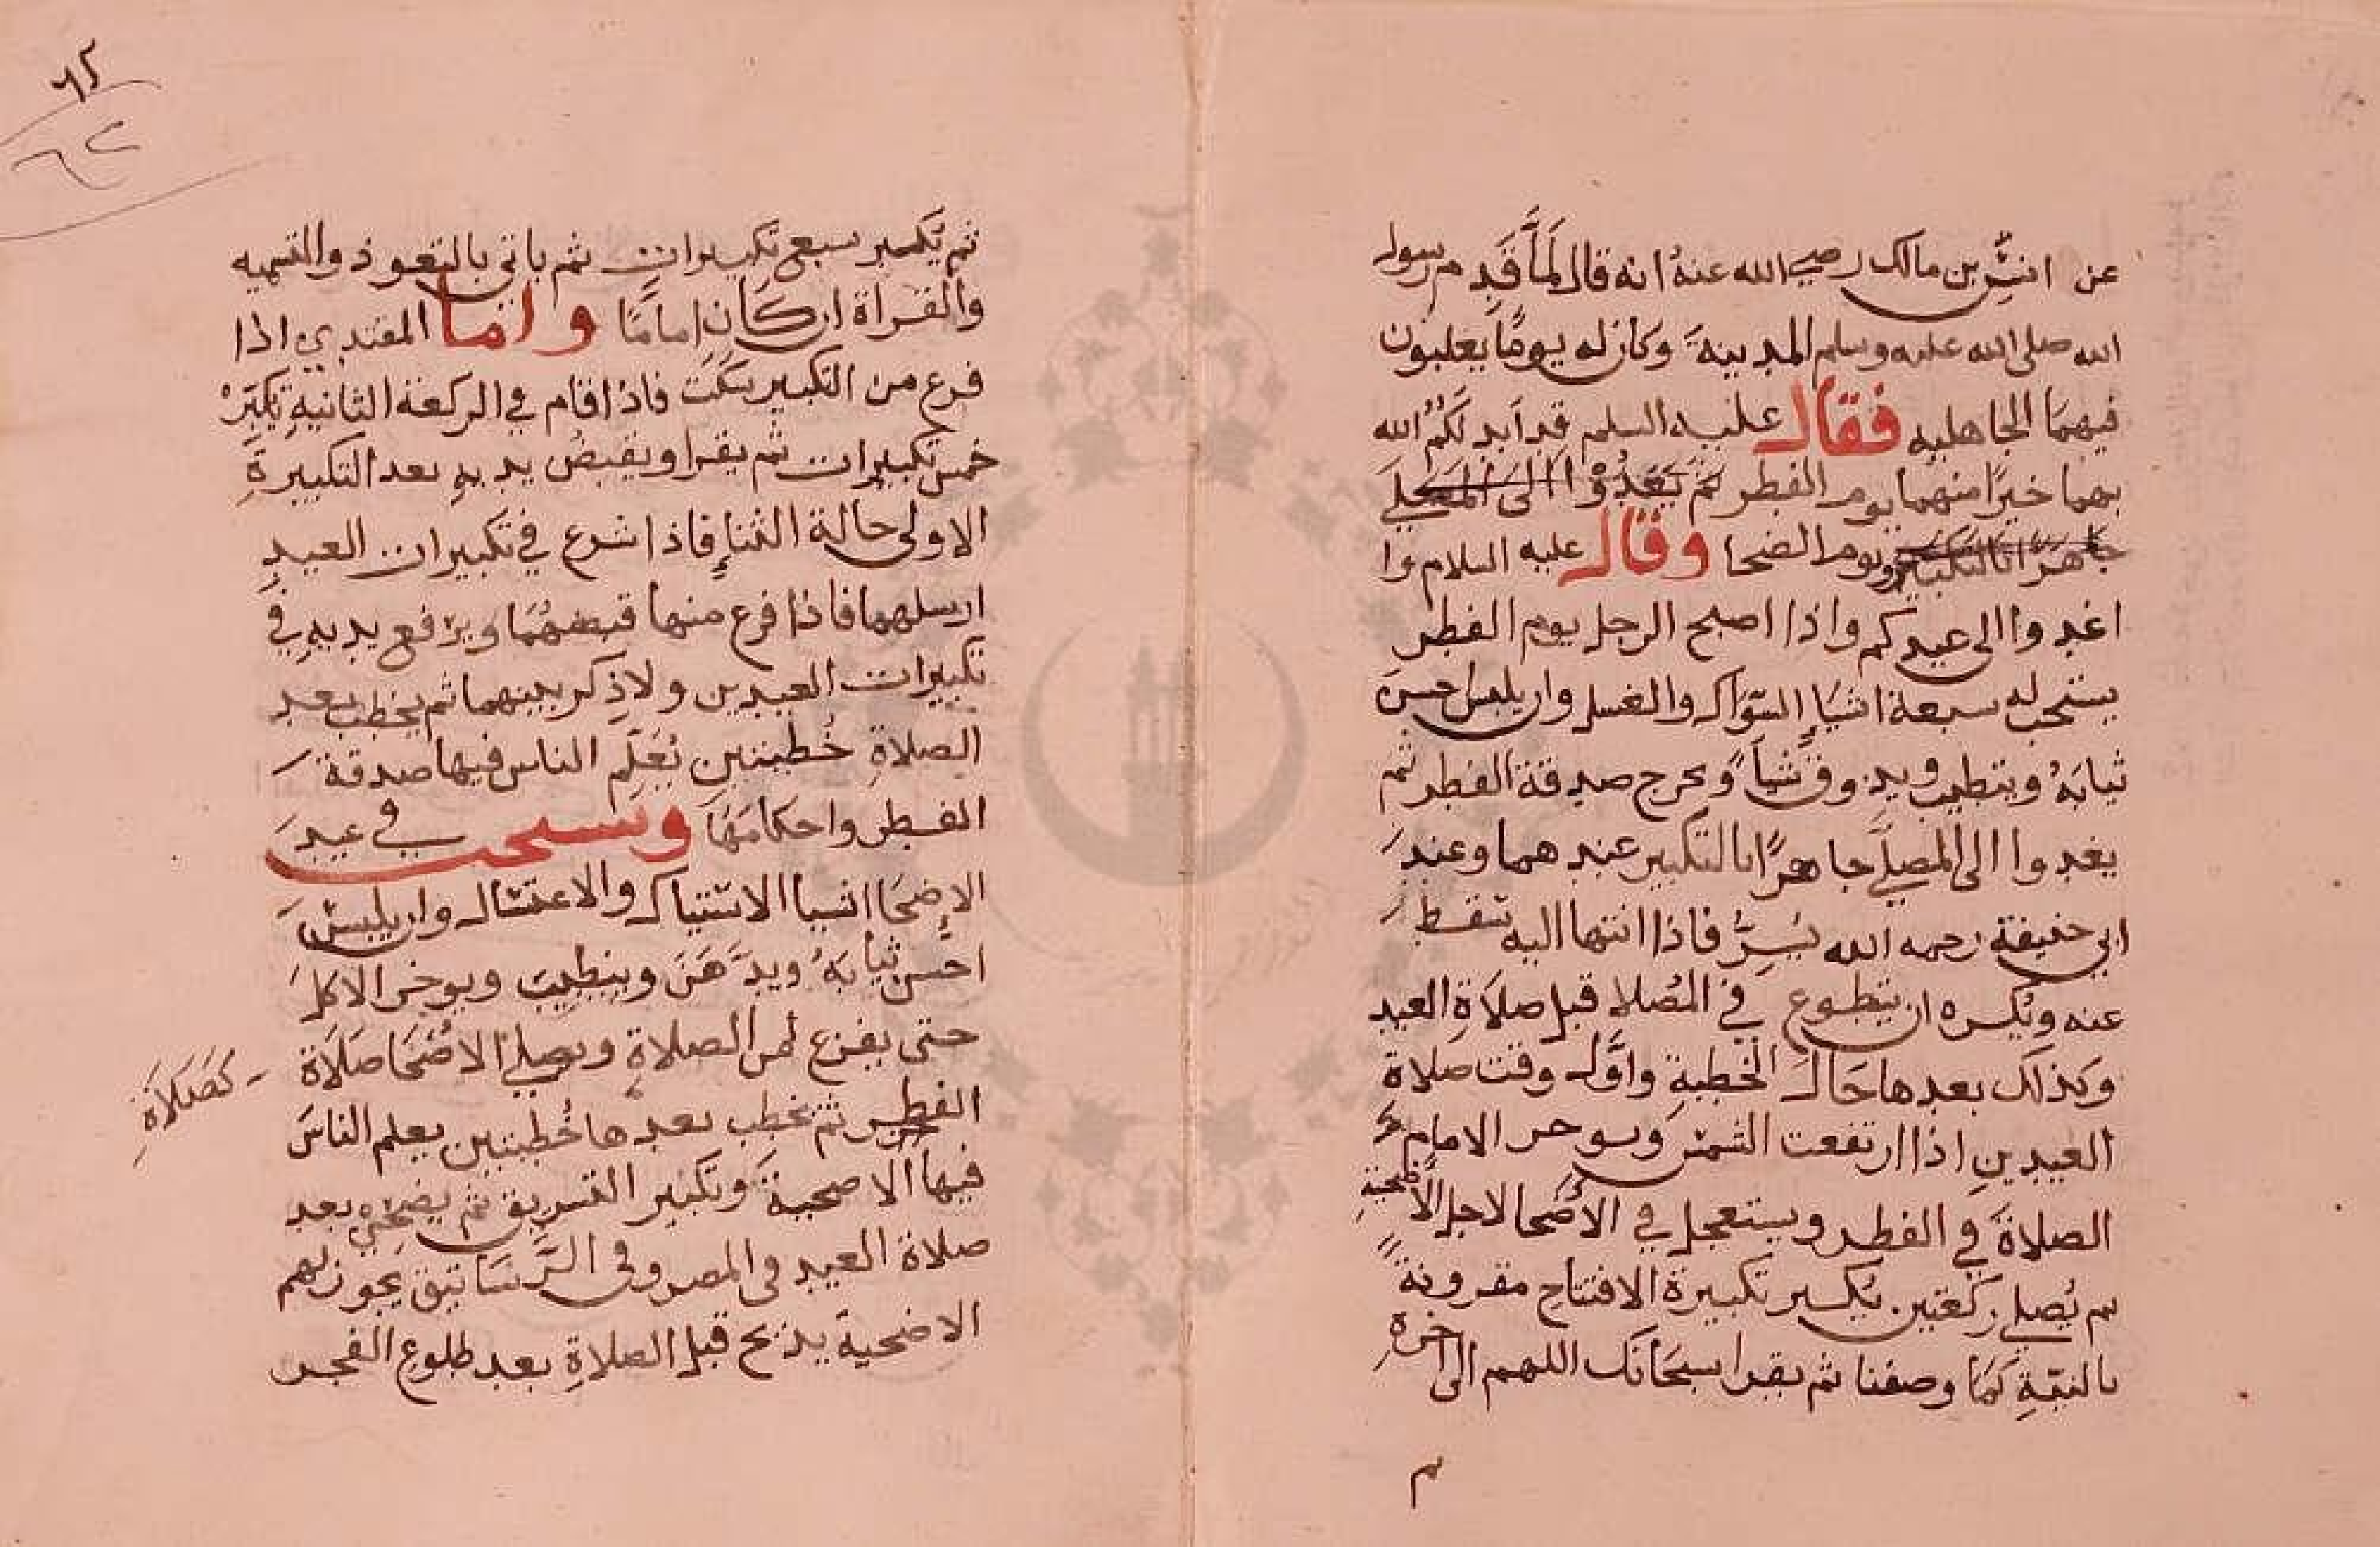 عن انسٍ بن مالك رضي الله عنهُ انه قال لمَّا قَدِم رسول
الله صلى الله عليه وسلم المدينة وكان له يومًا يعلبون
فيهمَا الجاهليه فقال عليه السلم قد ابدلَكُمُ الله
بهما خيرًا منهما يوم الفطر ثم يَغدُوا الى المصلي
جاهرًا بالتكبير ويوم الضحا وقال عليه السلام وا
اغدوا الى عيدكم واذا اصبح الرجل يوم الفطر
يستحب له سبعة اشيَا السّوَاك والغسل وان يلبس حسن
ثيابهُ ويتطيب ويذوق شياً ويخرج صدقة الفطر ثم
يغدوا الى المصلَّي جاهرًا بالتكبير عندهما وعندَ
ابي حنيفة رحمه الله يُسِرُّ فاذا انتها اليه تنقطـ
عنه ويُكره ان يتطوع في المُصلا قبل صلاَةِ العيد
وكذلك بعدها حَال الخطبةِ واوَّل وقت صلاة
العيدينِ اذا ارتفعت الشمس ويوخر الامام
الصلاةَ في الفطر ويستعجل في الأضحا لاجل الاضحيةِ
ثم يُصلي ركعتين يُكبر تكبيرة الافتتاح مقرونةً
بالنيّةِ كمَا وصفنا ثم يقرا سبحَانك اللهم الى اخرهِ
ثم
٦٢
٦٢
ثم يُكبر سبع تكبيرات ثم ياتي بالتعوذ والتسميه
والقراة ان كَان امامًا واما المقتدي اذا
فرع من التكبير سكَت فاذا قام في الركعة الثانيةِ تكبّرْ
خمس تكبيرات ثم يقرا ويقبضُ يديهِ بعد التكبيرةَِ
الاولى حالة الثناءِ فاذا شرع في تكبيرات العيدِ
ارسلهما فاذا فرع منها قبضهُمَا ويرفع يديهِ في
تكبيرات العيدين ولا ذِكر بينهما ثم يخطب بعد
الصلاةِ خُطبتين يُعَلّم الناس فيها صدقة
الفطر واحكامَهَا ويستحب في عيدَ
الاضحَا اشيا الاستياك والاغتسال وان يلبسَ
احُسن ثيابَهُ ويدَّهنَ ويتطيبَ ويوخر الاكلَ
حتى يفرَع من الصلاةِ ويصلي الاضْحَا صَلاَة
كَصَلاَةِ
الفطر ثم يخطب بعدها خُطبتين يعلم الناسَ
فيها الاضحيةَ وتكبير التشريق ثم يضحّي بعد
صلاة العيد في المصر وفي الرَّسَاتيق يجوز لهم
الاضحية يذبح قبل الصلاةِ بعد طلوع الفجر